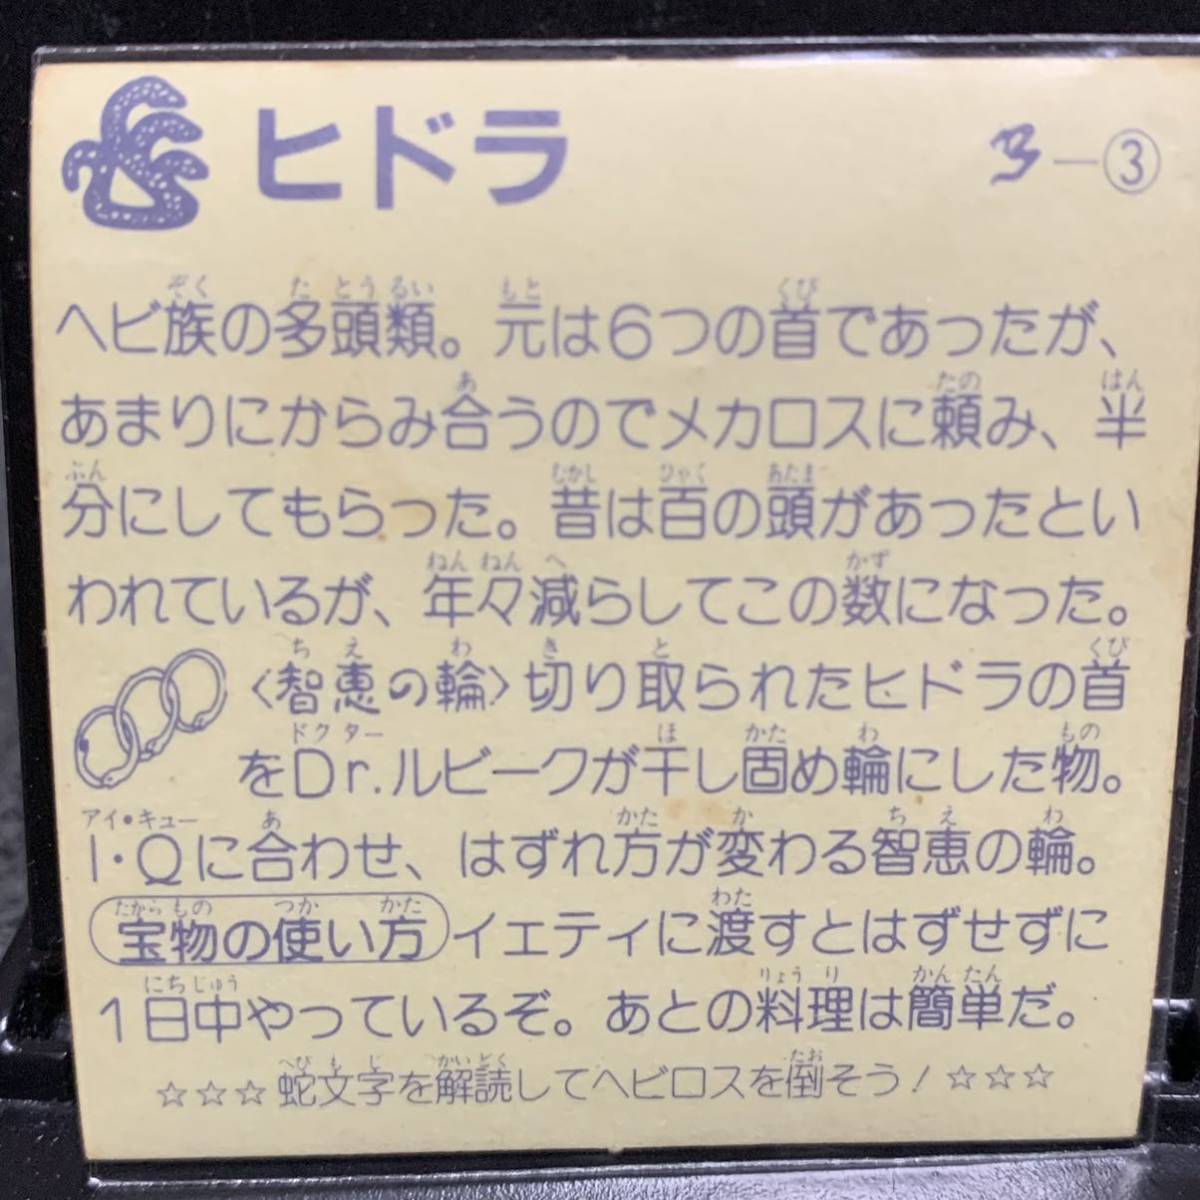 ヒドラ
ろ－③
ヘビ族の多頭類。元は6つの首であったが、
あまりにからみ合うのでメカロスに頼み、半
分にしてもらった。昔は百の頭があったとい
われているが、年々減らしてこの数になった。
〈智恵の輪〉切り取られたヒドラの首
をDr.ルビークが干し固め輪にした物。
I・Qに合わせ、はずれ方が変わる智恵の輪。
宝物の使い方 イエティに渡すとはずせずに
1日中やっているぞ。あとの料理は簡単だ。
☆☆☆蛇文字を解読してヘビロスを倒そう！☆☆☆